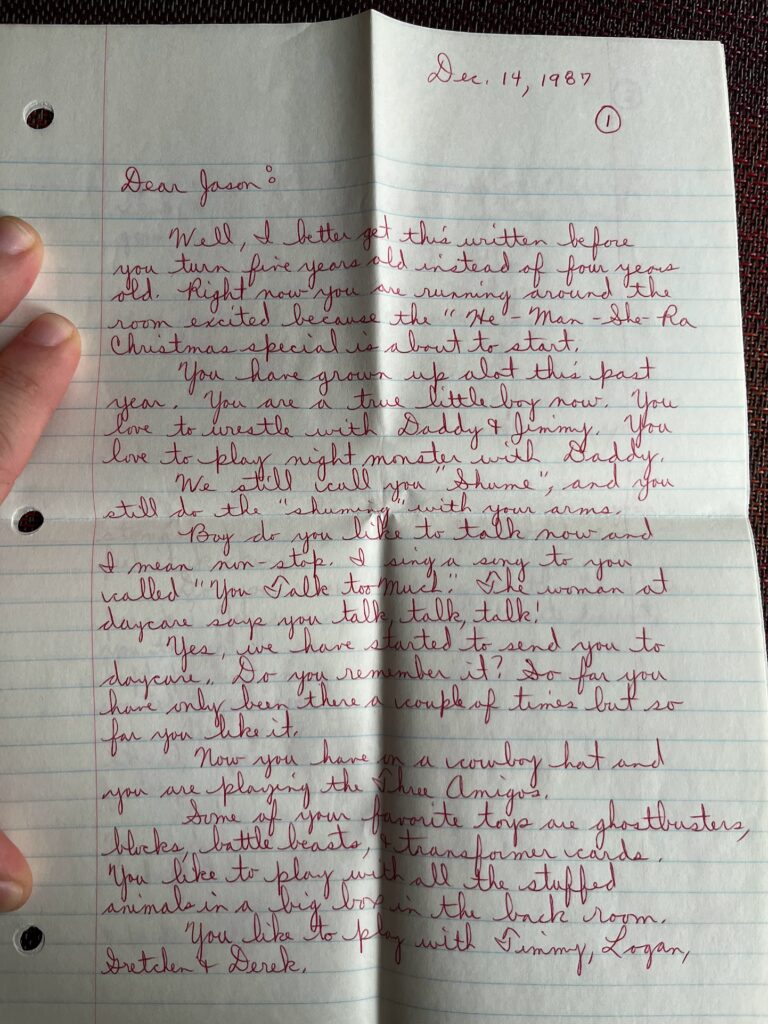 Dec. 14, 1987
1
Dear Jason:
Well, I better get this written before
you turn five years old instead of four years
old. Right now you are running around the
room excited because the "He-Man-She-Ra
Christmas special is about to start.
You have grown up alot this past
year. You are a true little boy now. You
love to wrestle with Daddy & Jimmy. You
love to play night monster with Daddy.
We still call you "Shume", and you
still do the "shuming" with your arms.
Boy do you like to talk now and
I mean non-stop. I sing a song to you
called "You Talk too Much." The woman at
daycare says you talk, talk, talk!
Yes, we have started to send you to
daycare. Do you remember it? So far you
have only been there a couple of times but so
far you like it.
Now you have on a cowboy hat and
you are playing the Three Amigos.
Some of your favorite toys are ghostbusters,
blocks, battle beasts, & transformer cards.
You like to play with all the stuffed
animals in a big box in the back room.
You like to play with Timmy, Logan,
Gretchen & Derek.